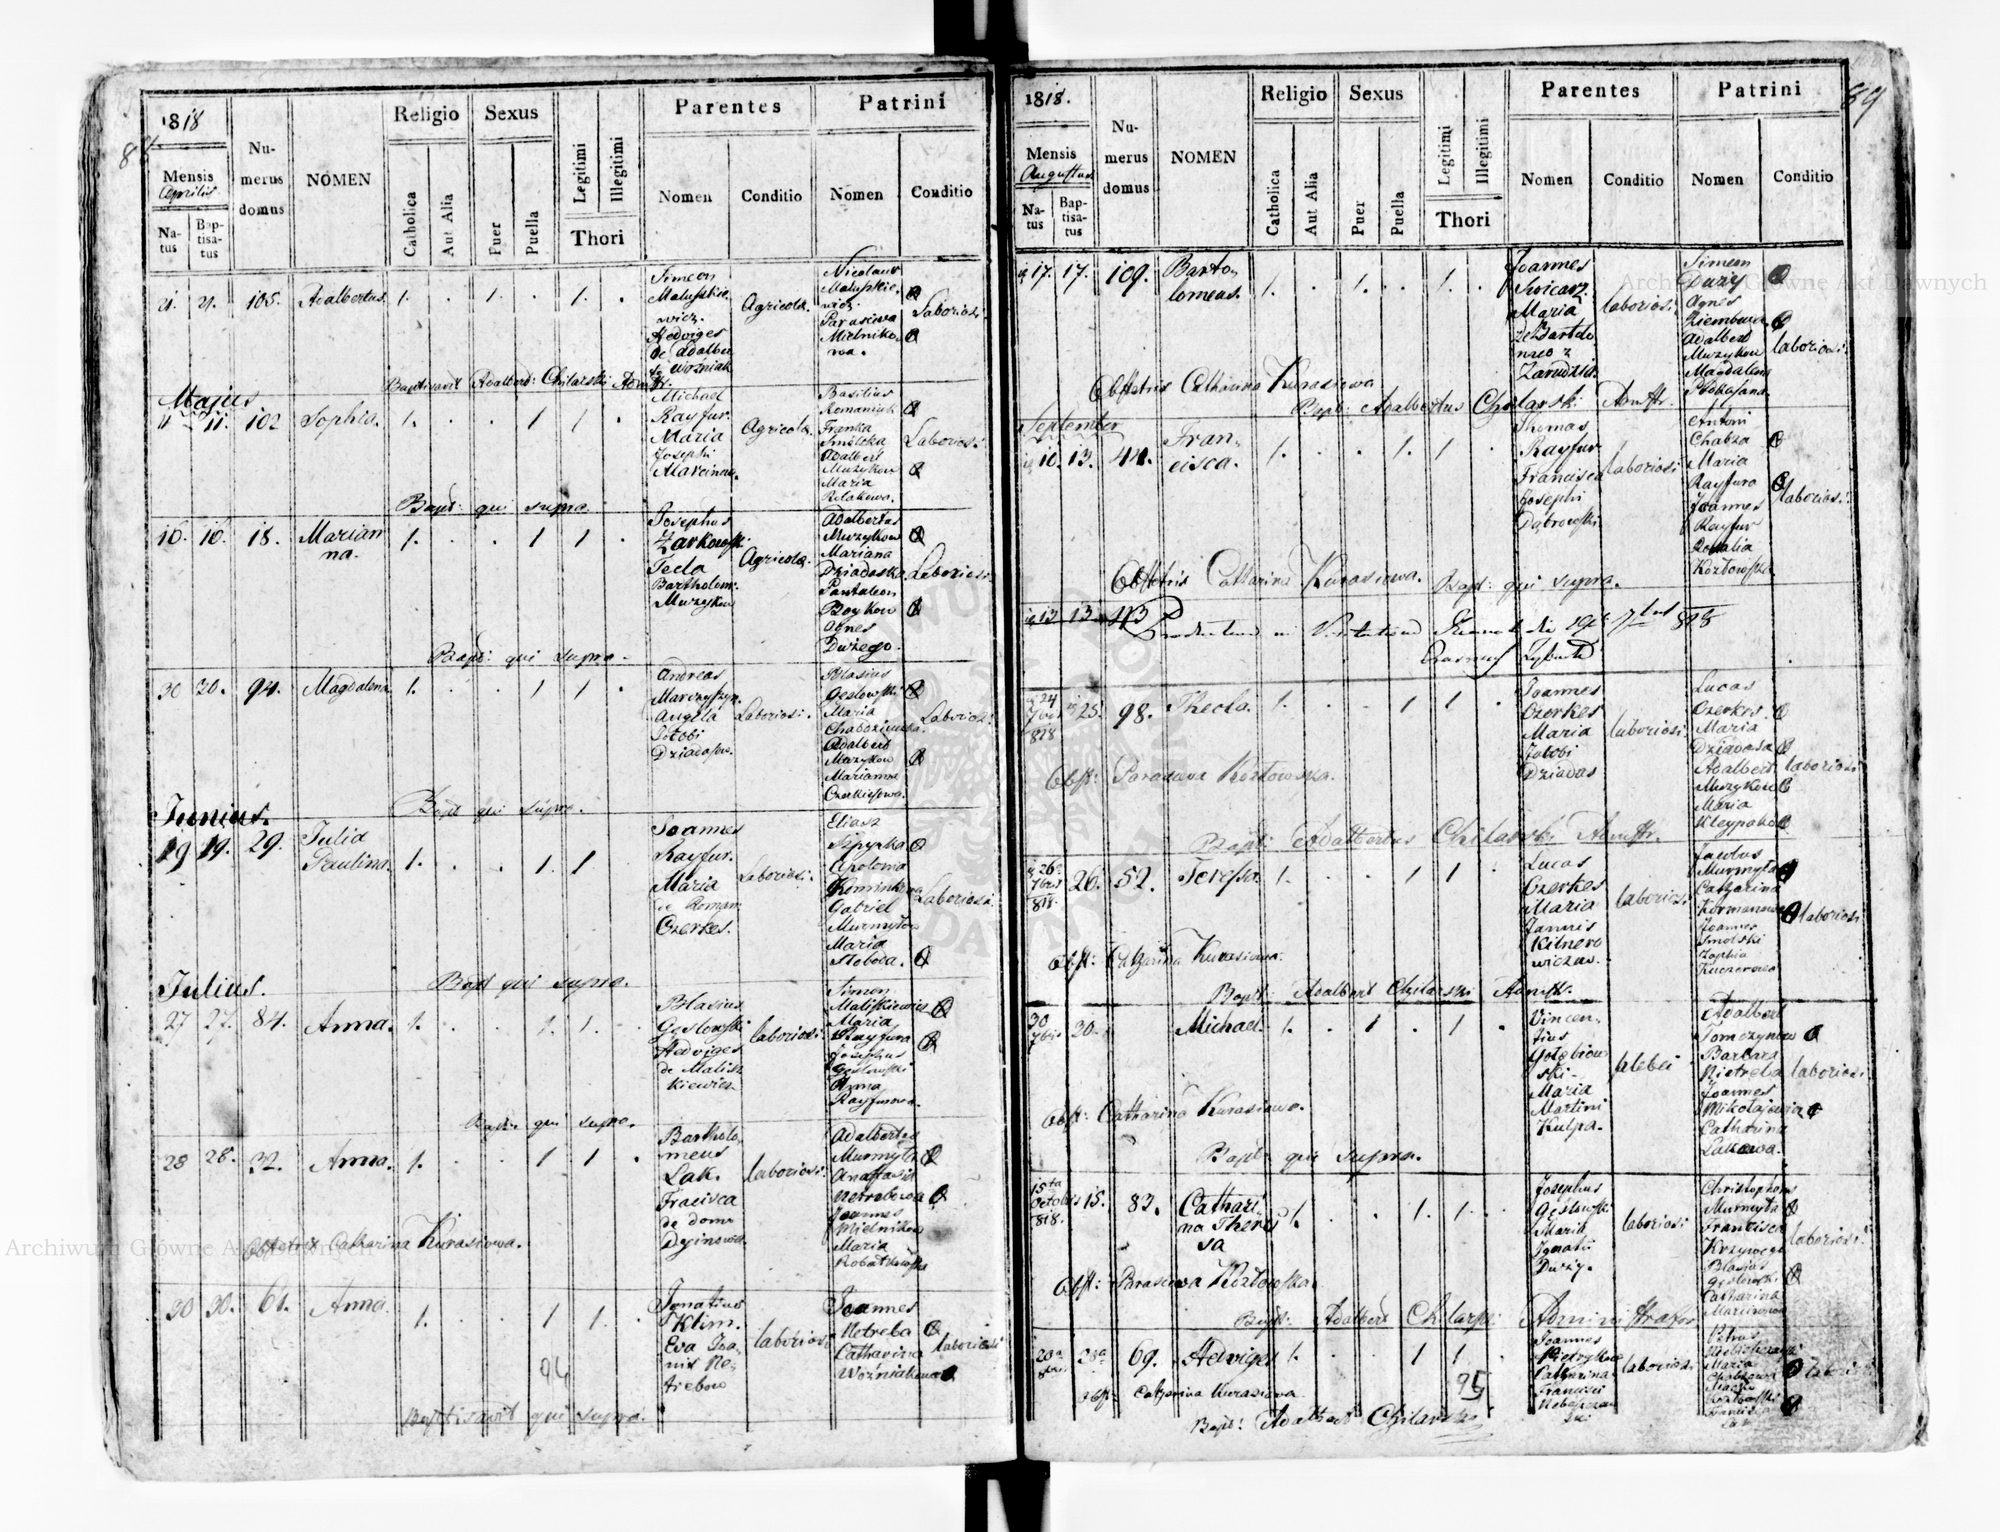 88.
1818
Mensis
Aprilis
Na-
tus
Bap-
tisa-
tus
Nu-
merus
domus
NOMEN
Religio
Catholica
Aut Alia
Sexus
Puer
Puella
Legitimi
Illegitimi
Thori
Parentes
Nomen
Conditio
Patrini
Nomen
Conditio
21. 21. 105. Adalbertus. 1. . 1. . 1. .
Simeon
Maluszkie-
wicz.
Hedviges
de Adalber
Woźniak
Agricola.
Nicolaus
Maluszkie-
wicz
Parasceva
Mielniko-
wa.
Laboriosi.
Baptisavit Adalbert: Chilarski Admr.
Majus
11 11. 102 Sophia. 1. . . 1 1 .
Michael
Rayfur.
Maria
Josephi
Marcinow.
Agricola.
Basilius
Romaniuk
Franka
Smolska
Adalbert
Muzykow
Maria
Polakowa.
Laboriosi.
Bapt: qui supra.
16. 16. 18. Marian
na. 1. . . 1 1 .
Josephus
Żarkowski.
Tecla
Bartholom:
Muzykow
Agricola.
Adalbertus
Muzykow
Mariana
Dziadoska
Pantaleon
Boykow
Agnes
Dużego.
Laboriosi.
Bapt: qui supra.
30 30. 94. Magdalena. 1. . . 1 1 .
Andreas
Marczyszyn.
Angela
Jotobi
Dziadosow.
Laboriosi.
Blasius
Gęslowski
Maria
Adalbert
Muzykow
Marianna
Czerkiesowa.
Laboriosi.
Bapt qui supra.
Junius.
19 19. 29. Julia
Paulina. 1. . . 1. 1 .
Joannes
Rayfur.
Maria
de Roman
Czerkes.
Laboriosi.
Eliasz
Szpyrka
Apolonia
Kominkowa
Gabriel
Murmyto
Maria
Stoboda.
Laboriosi.
Bapt qui supra.
Julius.
27 27. 84. Anna. 1. . . 1. 1. .
Blasius
Gęslowski
Hedviges
de Malisz
kiewicz.
laboriosi.
Simon
Maliszkiewicz
Maria
Rayfura
Josephus
Gęslowski
Anna
Rayfurowa.
Bapt: qui supra.
28 28. 32. Anna. 1. . . 1 1 .
Bartholo
meus
Lak.
Fracisca
de domo
Dyinowa.
laboriosi.
Adalbertus
Murmyto
Anastasia
Netrebowa
Joannes
Mielnikow
Maria
Obstetrix Catharina Kurasiowa.
30 30. 61. Anna. 1. . . 1 1. .
Ignatius
Klim.
Eva Joa-
nis Ne-
trebow
laboriosi.
Joannes
Netreba
Catharina
Woźniakowa
laboriosi
94
Baptisavit qui supra.
89
1818.
Mensis
Augustus
Na-
tus
Bap-
tisa-
tus
Nu-
merus
domus
NOMEN
Religio
Catholica
Aut Alia
Sexus
Puer
Puella
Legitimi
Illegitimi
Thori
Parentes
Nomen
Conditio
Patrini
Nomen
Conditio
17. 17. 109. Barto-
lomeus. 1. . 1. . 1. .
Joannes
Swicarz
Maria
Zarudzia.
laboriosi.
Simeon
Duzy
Agnes
Ziembowa.
Adalbert
Muzykow
Magdalena
laboriosi.
Obstetris Catharina Kurasiowa
Bapt: Adalbertus Chilarski Admstr.
September
10. 13. 44. Fran-
cisca. 1. . . 1. 1 .
Thomas
Rayfur
Francisca
Josephi
Dąbrowski
laboriosi
Antoni
Chabza
Maria
Rayfura
Joannes
Rayfur
Rosalia
Kozłowska
laboriosi.
Obstetris Catharina Kurasiowa. Bapt: qui supra.
13 13 43
24
7bris
818
25. 98. Thecla. 1. . . 1 1 .
Joannes
Czerkes
Maria
Jotobi
Dziadas
laboriosi
Lucas
Czerkes.
Maria
Dziadasa
Adalbert
Muzykow
Maria
laboriosi
Obst: Parasceva Kozłowska.
Bapt: Adalbertus Chilarski Admstr.
26
7bris
818.
26. 52. Teressa. 1. . . 1 1 .
Lucas
Czerkes
Maria
laboriosi
Jacobus
Murmyta
Catharina
Joannes
Smolski
Zophia
laboriosi
Obst: Catharina Kurasiowa.
Bapt. Adalbert Chilarski Admst.
30
7bris
30. Michael. 1. . 1 . 1 .
Vincen-
tius
Gołębiow
ski-
Maria
Martini
Kulpa.
plebei
Adalbert
Tomczynow
Barbara
Nietreba
Joannes
Mikołajewicz
Catharina
Lakowa.
laboriosi
Obst: Catharina Kurasiowa.
Bapt: qui supra.
15ta
Octobris
818.
15. 83. Cathari-
na There
sa 1. . . 1. 1. .
Josephus
Gęslowski
Maria
Ignatii
Duzy.
laboriosi
Christophorus
Murmyta
Francisca
Blasius
Gęslowski
Catharina
Marcinowa
laboriosi
Obst: Parasceva Kozłowska
Bapt: Adalbert Chilarski Administrator
20a
8bris
28a 69. Hedviges 1. . . 1 1 .
Joannes
Catharina
Francisci
laboriosi.
Petrus
Maria
Obst: Catharina Kurasiowa.
95
Bapt: Adalbert Chilarski
Archiwum Główne Akt Dawnych
Archiwum Główne Akt Dawnych